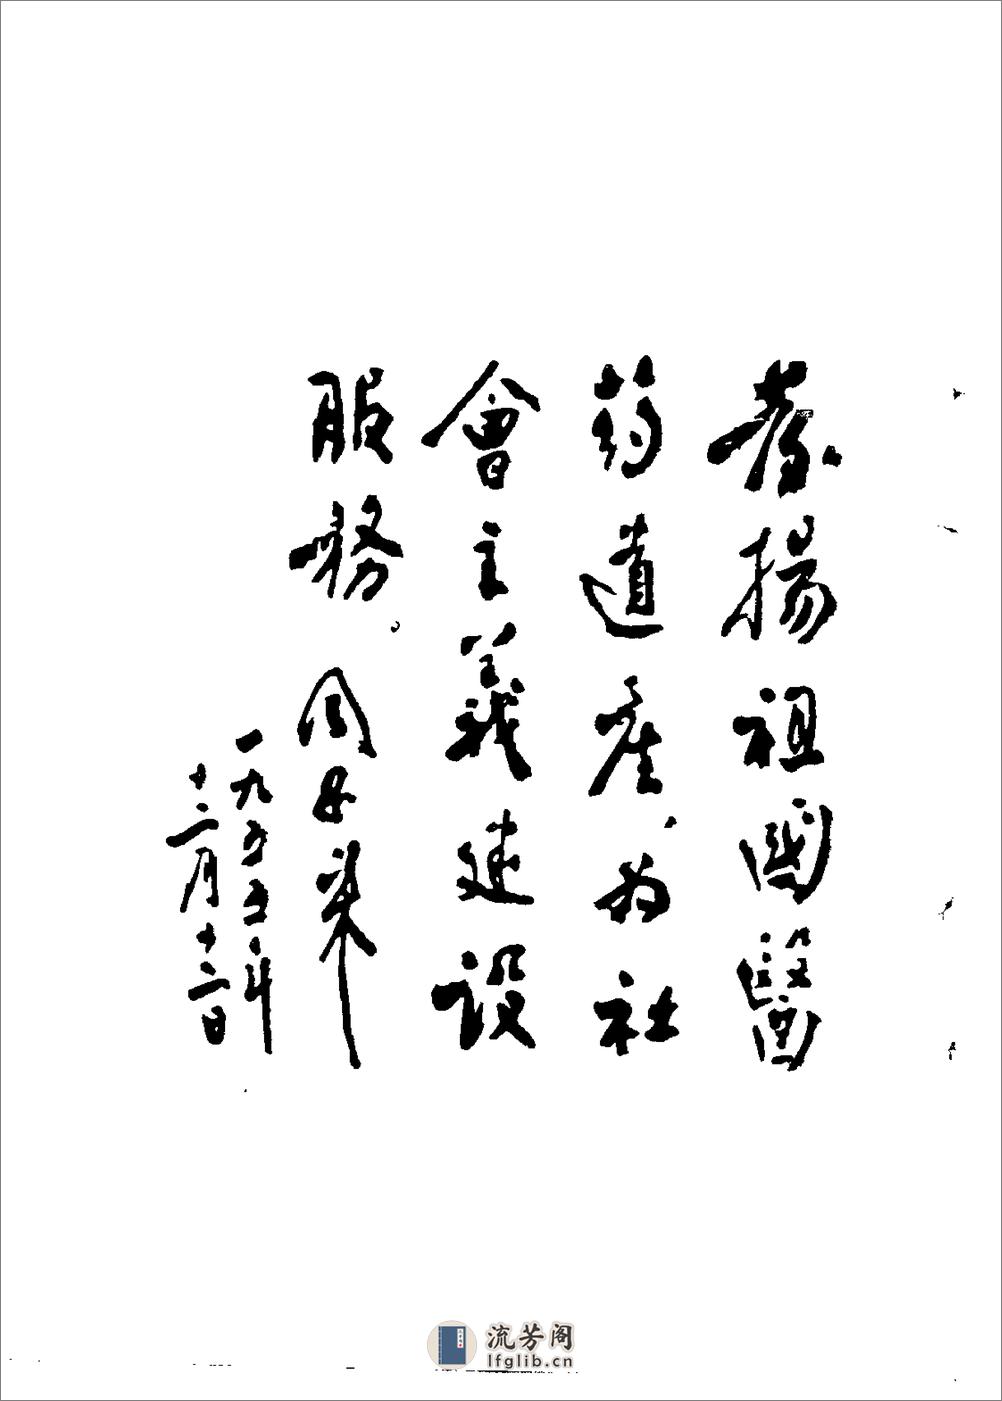 发揚祖國醫
药遺產、为社
會主義建設
服務。周恩来
一九五五年
十二月十二日
流芳阁
lfglib.cn